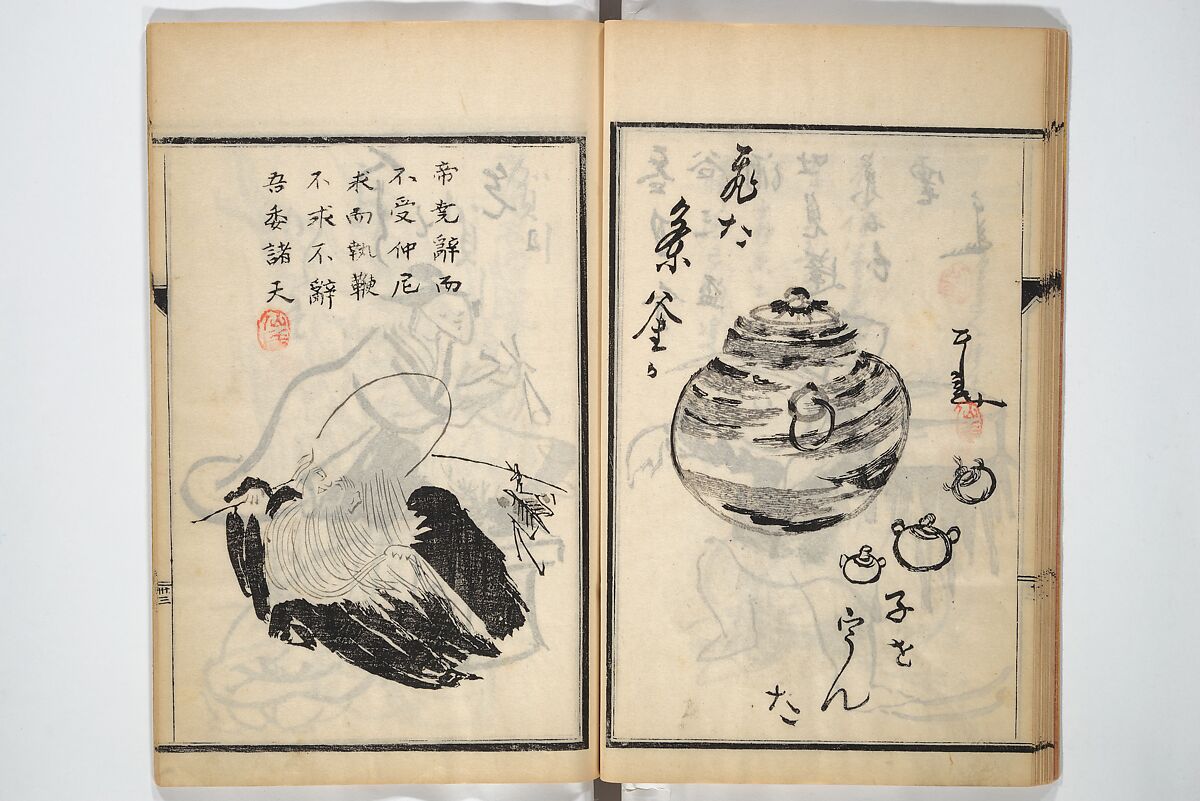 飛た
茶
釜か
子を
うん
た
帝堯辭而
不受仲尼
求而執鞭
不求不辭
吾委諸天
卅三